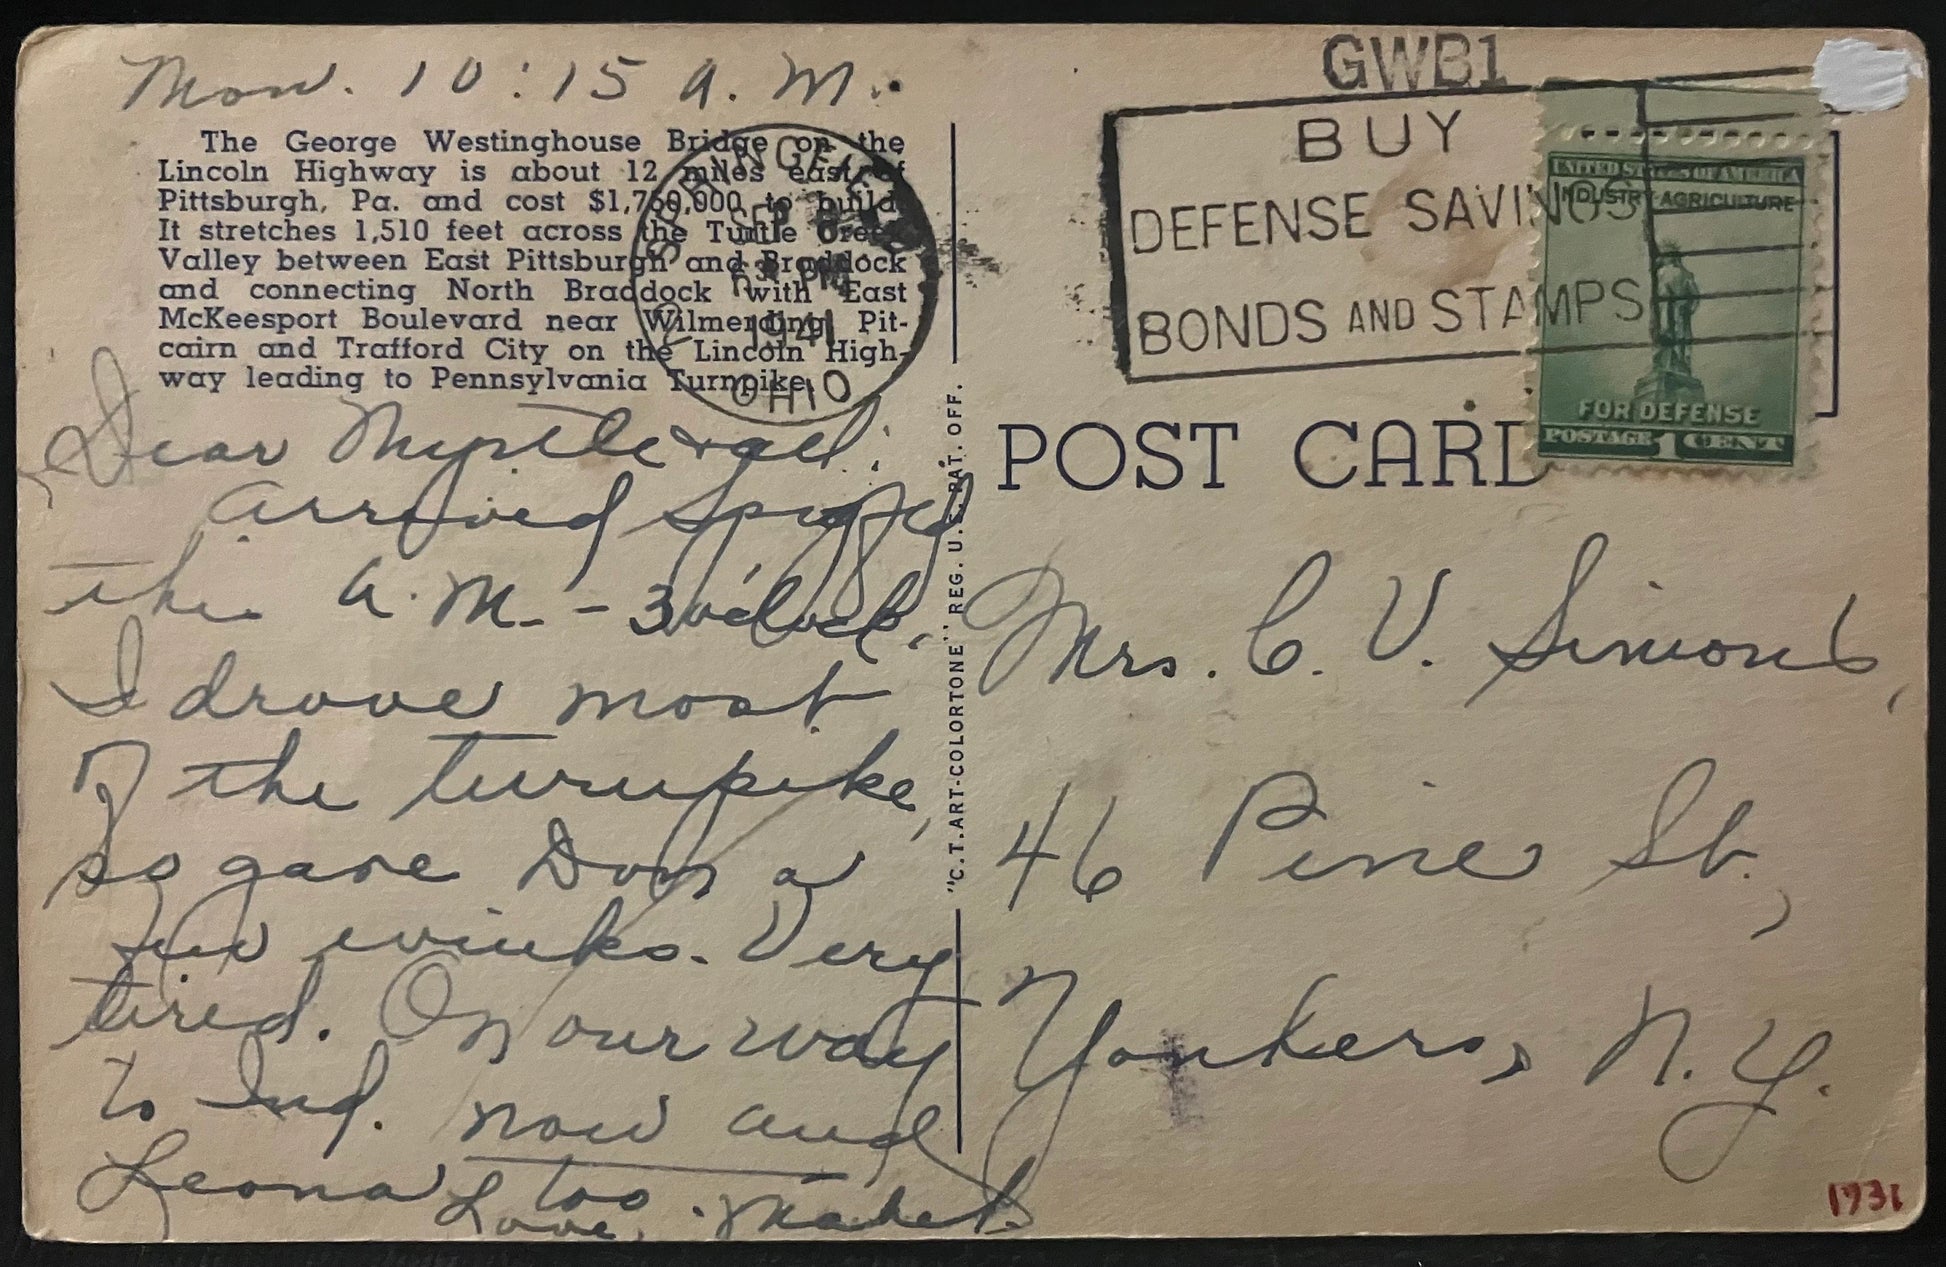 Mon. 10:15 A.M.
The George Westinghouse Bridge on the
Lincoln Highway is about 12 miles east of
Pittsburgh, Pa. and cost $1,760,000 to build.
It stretches 1,510 feet across the Turtle Creek
Valley between East Pittsburgh and Braddock
and connecting North Braddock with East
McKeesport Boulevard near Wilmerding, Pit-
cairn and Trafford City on the Lincoln High-
way leading to Pennsylvania Turnpike.
SEP 8
PM
1941
OHIO
Dear Myrtle & all:
Arrived Sprgfld
this A.M. - 3 o'clock.
I drove most
of the turnpike,
so gave Don a
few winks. Very
tired. On our way
to Ind. now and
Leona too
Love, Mabel.
"C.T. ART-COLORTONE" REG. U.S. PAT. OFF.
GWB1
BUY
DEFENSE SAVINGS
BONDS AND STAMPS
UNITED STATES OF AMERICA
INDUSTRY-AGRICULTURE
FOR DEFENSE
POSTAGE 1 CENT
POST CARD
Mrs. C. V. Simons,
46 Pine St.,
Yonkers, N.Y.
1931